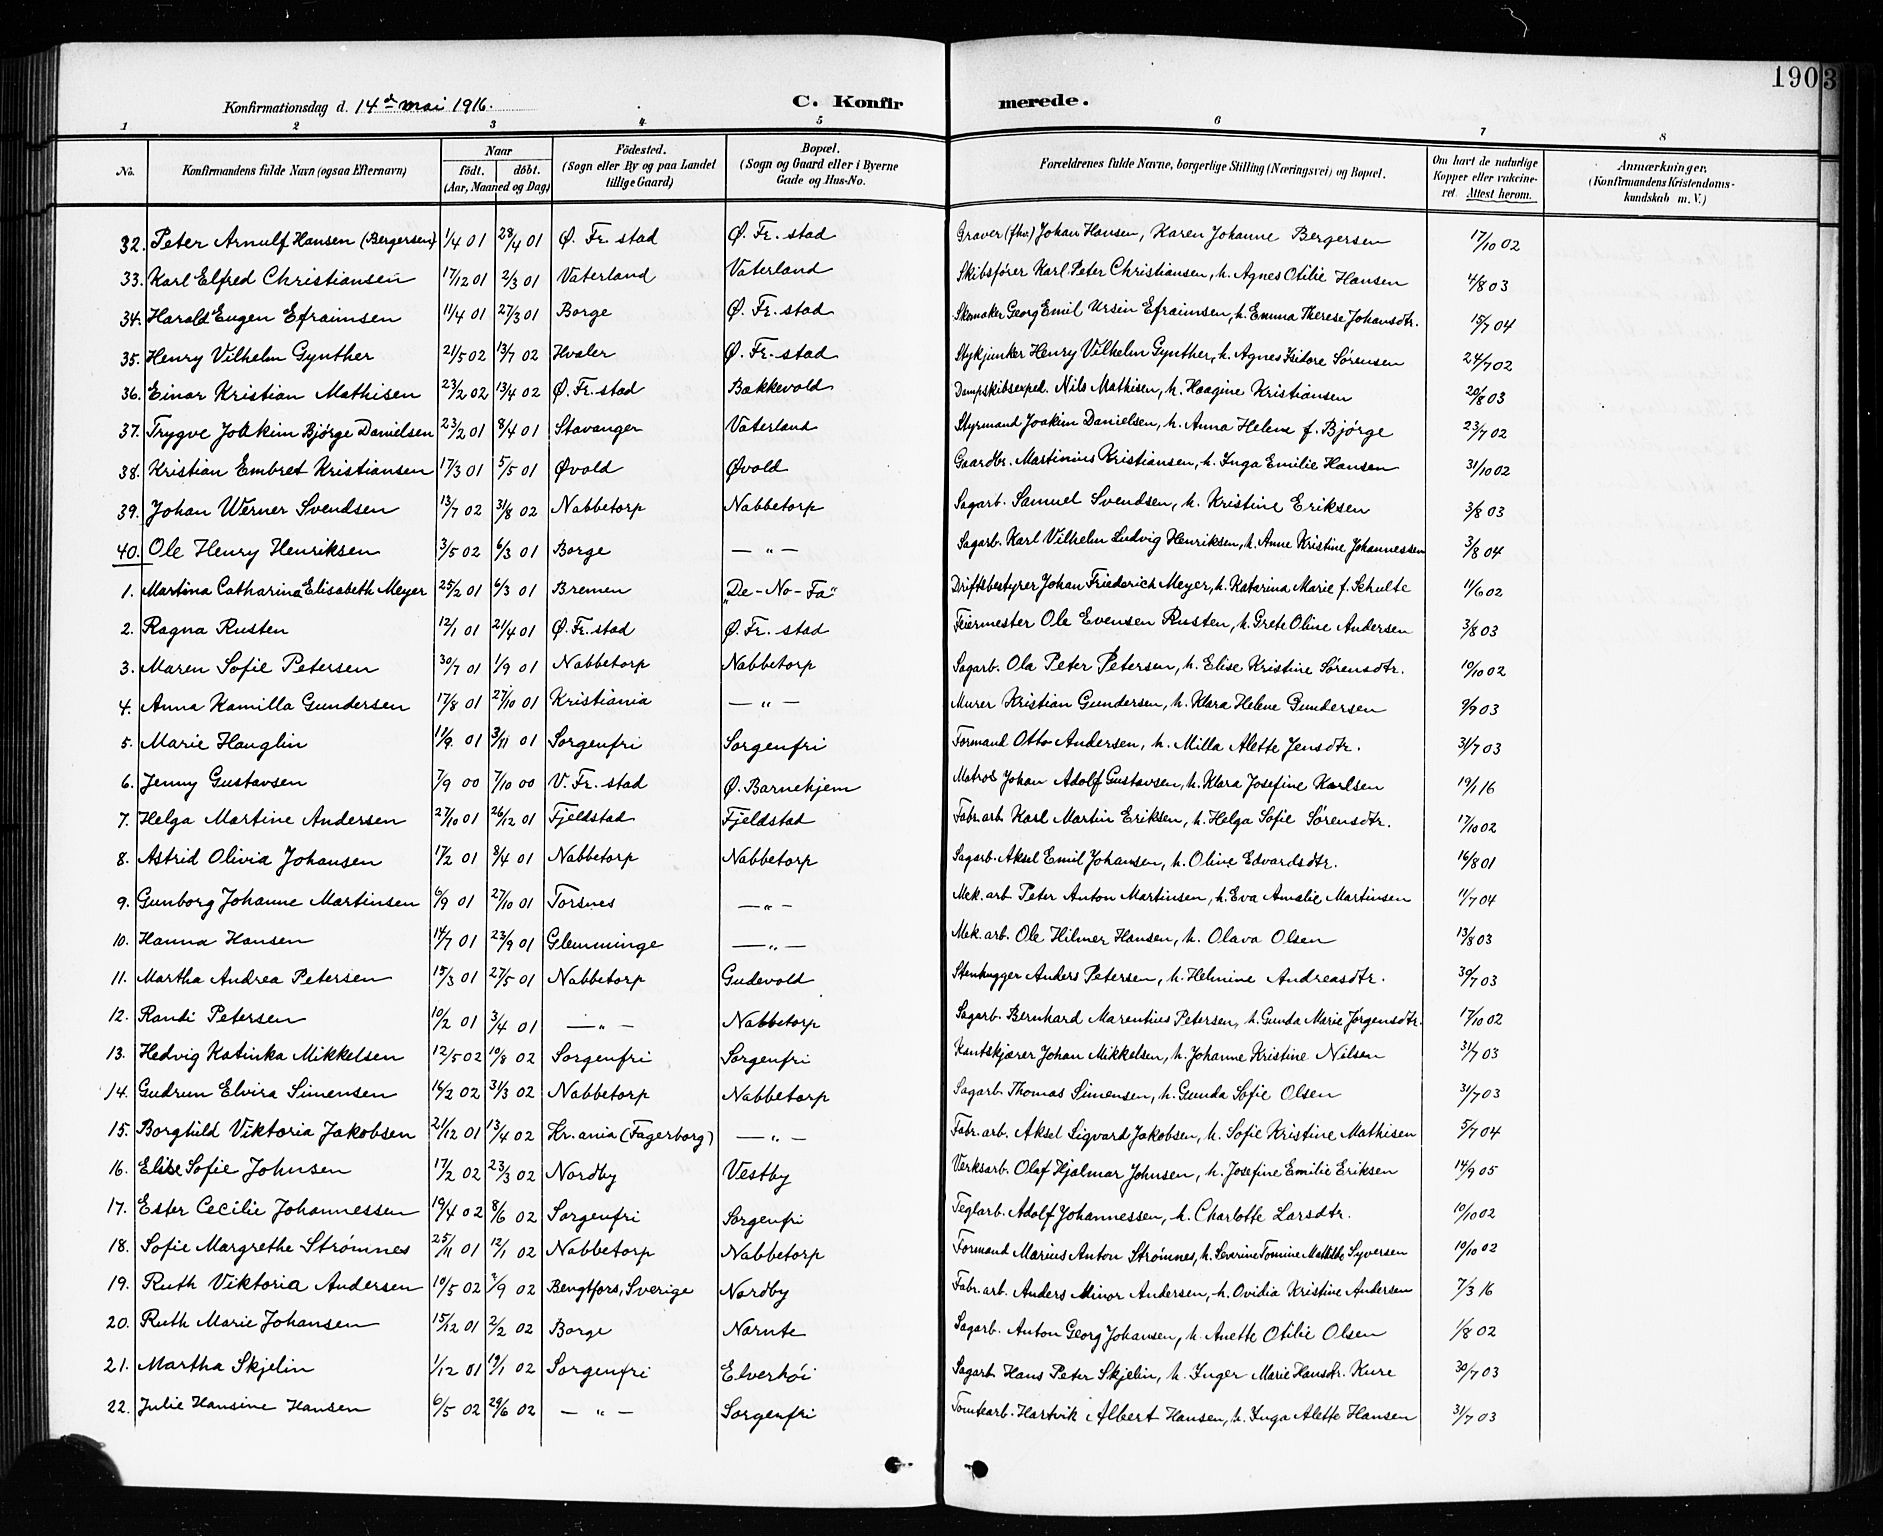 1903
Konfirmationsdag d. 14de mai 1916.
C. Konfirmerede.
1 2 3 4 5 6 7 8
No. Konfirmandens fulde Navn (ogsaa Efternavn) Naar født. døbt. (Aar, Maaned og Dag) Fødested. (Sogn eller By og paa Landet tillige Gaard) Bopæl. (Sogn og Gaard eller i Byerne Gade og Hus-No. Forældrenes fulde Navne, borgerlige Stilling (Næringsvei) og Bopæl. Om havt de naturlige Kopper eller vakcineret. Attest herom. Anmærkninger, (Konfirmandens Kristendomskundskab m. V.)
32. Peter Arnulf Hansen (Bergersen) 1/4 01 28/4 01 Ø. Fr. stad Ø. Fr. stad Graver (fhv.) Johan Hansen, Karen Johanne Bergersen 17/10 02
33. Karl Elfred Christiansen 17/12 01 2/3 01 Vaterland Vaterland Skibsfører Karl Peter Christiansen, h. Agnes Otilie Hansen 4/8 03
34. Harald Eugen Efraimsen 11/4 01 27/3 01 Borge Ø. Fr. stad Skomaker Georg Emil Ursin Efraimsen, h. Emma Therese Johansdtr. 15/7 04
35. Henry Vilhelm Gynther 21/5 02 13/7 02 Hvaler Ø. Fr. stad Stykjunker Henry Vilhelm Gynther, h. Agnes Isidore Sørensen 24/7 02
36. Einar Kristian Mathisen 23/2 02 13/4 02 Ø. Fr. stad Bakkevold Dampskibsexped. Nils Mathisen, h. Haagine Kristiansen 20/8 03
37. Trygve Joakim Bjørge Danielsen 23/2 01 8/4 01 Stavanger Vaterland Styrmand Joakim Danielsen, h. Anna Helene f. Bjørge 23/7 02
38. Kristian Embret Kristiansen 17/3 01 5/5 01 Øvold Øvold Gaardbr. Martinius Kristiansen, h. Inga Emilie Hansen 31/10 02
39. Johan Werner Svendsen 13/7 02 31/8 02 Nabbetorp Nabbetorp Sagarb. Samuel Svendsen, h. Kristine Eriksen 3/8 03
40. Ole Henry Henriksen 3/5 02 6/3 01 Borge — " — Sagarb. Karl Vilhelm Ludvig Henriksen, h. Anne Kristine Johannessen 3/8 04
1. Martina Catharina Elisabeth Meyer 25/2 01 6/3 01 Bremen "De-No-Fa" Driftsbestyrer Johan Friederich Meyer, h. Katarina Marie f. Schulte 11/6 02
2. Ragna Rusten 12/1 01 21/4 01 Ø. Fr. stad Ø. Fr. stad Feiermester Ole Evensen Rusten, h. Grete Oline Andersen 3/8 03
3. Maren Sofie Petersen 30/7 01 1/9 01 Nabbetorp Nabbetorp Sagarb. Ola Peter Petersen, h. Elise Kristine Sørensdtr. 10/10 02
4. Anna Kamilla Gundersen 17/8 01 27/10 01 Kristiania — " — Murer Kristian Gundersen, h. Klara Helene Gundersen 9/9 03
5. Marie Hauglin 11/9 01 3/11 01 Sorgenfri Sorgenfri Formand Otto Andersen, h. Milla Alette Jensdtr. 31/7 03
6. Jenny Gustavsen 7/9 00 7/10 00 V. Fr. stad Ø. Barnehjem Matros Johan Adolf Gustavsen, h. Klara Josefine Karlsen 19/1 16
7. Helga Martine Andersen 27/10 01 26/12 01 Fjeldstad Fjeldstad Fabr. arb. Karl Martin Eriksen, h. Helga Sofie Sørensdtr. 17/10 02
8. Astrid Olivia Johansen 17/2 01 8/4 01 Nabbetorp Nabbetorp Sagarb. Aksel Emil Johansen, h. Oline Edvardsdtr. 16/8 01
9. Gunborg Johanne Martinsen 6/9 01 27/10 01 Torsnes — " — Mek. arb. Peter Anton Martinsen, h. Eva Amalie Martinsen 11/7 04
10. Hanna Hansen 14/7 01 23/9 01 Glemminge — " — Mek. arb. Ole Hilmer Hansen, h. Olava Olsen 13/8 03
11. Martha Andrea Petersen 15/3 01 27/5 01 Nabbetorp Gudevold Stenhugger Anders Petersen, h. Helmine Andreasdtr. 30/7 03
12. Randi Petersen 10/2 01 3/4 01 — " — Nabbetorp Sagarb. Bernhard Marentius Petersen, h. Gunda Marie Jørgensdtr. 17/10 02
13. Hedvig Katinka Mikkelsen 12/5 02 10/8 02 Sorgenfri Sorgenfri Kantskjærer Johan Mikkelsen, h. Johanne Kristine Nilsen 31/7 03
14. Gudrun Elvira Simensen 16/2 02 31/3 02 Nabbetorp Nabbetorp Sagarb. Thomas Simensen, h. Gunda Sofie Olsen 31/7 03
15. Borghild Viktoria Jakobsen 21/12 01 13/4 02 Kr.ania (Fagerborg) — " — Fabr. arb. Aksel Sigvard Jakobsen, h. Sofie Kristine Mathisen 5/7 04
16. Elise Sofie Johnsen 17/2 02 23/3 02 Nordby Vestby Verksarb. Olaf Hjalmar Johnsen, h. Josefine Emilie Eriksen 14/9 05
17. Ester Cecilie Johannessen 19/4 02 8/6 02 Sorgenfri Sorgenfri Teglarb. Adolf Johannessen, h. Charlotte Larsdtr. 10/10 02
18. Sofie Margrethe Strømnes 25/11 01 12/1 02 Nabbetorp Nabbetorp Formand Marius Anton Strømnes, h. Severine Tomine Mathilde Syversen 10/10 02
19. Ruth Viktoria Andersen 10/5 02 2/9 02 Bengtfors, Sverige Nordby Fabr. arb. Anders Minor Andersen, h. Ovidia Kristine Andersen 7/3 16
20. Ruth Marie Johansen 15/12 01 2/2 02 Borge Narnte Sagarb. Anton Georg Johansen, h. Anette Otilie Olsen 1/8 02
21. Martha Skjelin 1/12 01 19/1 02 Sorgenfri Elverhöi Sagarb. Hans Peter Skjelin, h. Inger Marie Hansdtr. Kure 30/7 03
22. Julie Hansine Hansen 6/5 02 29/6 02 — " — Sorgenfri Tomtearb. Hartvik Albert Hansen, h. Inga Alette Hansen 31/7 03